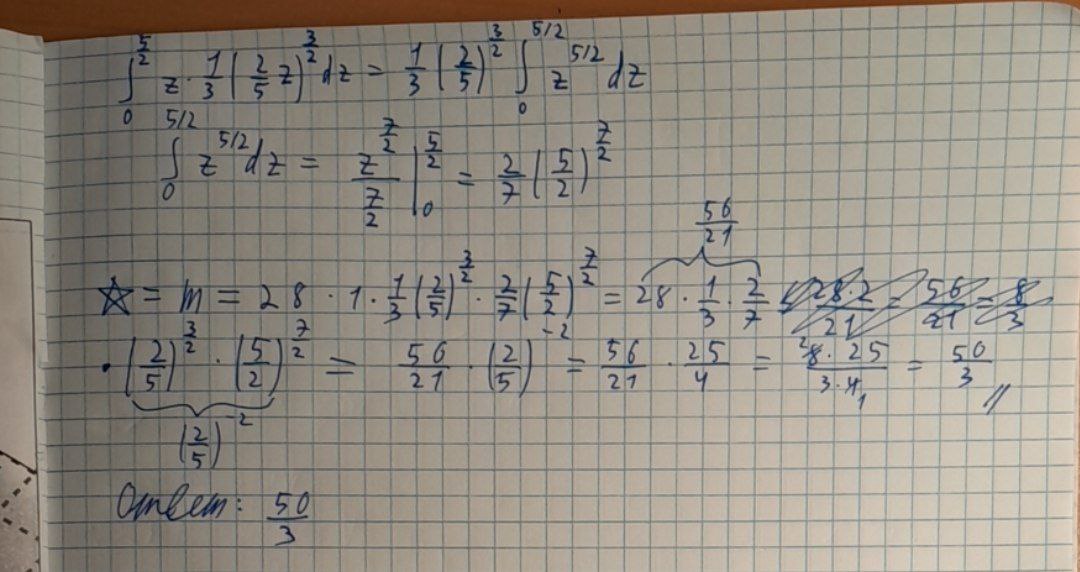 ∫₀^{5/2} z · 1/3 (2/5 z)^{3/2} dz = 1/3 (2/5)^{3/2} ∫₀^{5/2} z^{5/2} dz
∫₀^{5/2} z^{5/2} dz = z^{7/2} / (7/2) |₀^{5/2} = 2/7 (5/2)^{7/2}
56/21
☆ = m = 28 · 1 · 1/3 (2/5)^{3/2} · 2/7 (5/2)^{7/2} = 28 · 1/3 · 2/7 · 28·2/21 = 56/21 = 8/3
· (2/5)^{3/2} · (5/2)^{7/2} = 56/21 · (2/5)^{-2} = 56/21 · 25/4 = ²8 · 25 / 3 · 4₁ = 50/3 //
(2/5)^{-2}
Ответ: 50/3